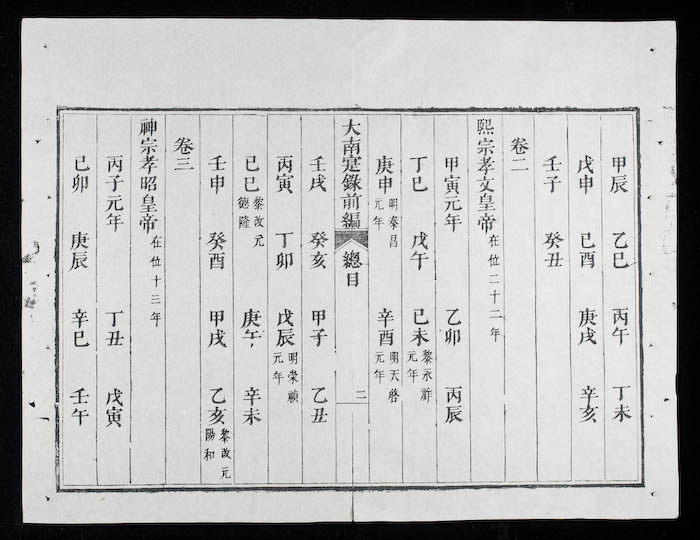 甲辰 乙巳 丙午 丁未
戊申 己酉 庚戌 辛亥
壬子 癸丑
卷二
熙宗孝文皇帝在位二十二年
甲寅元年 乙卯 丙辰
丁巳 戊午 己未黎永祚元年
庚申明泰昌元年 辛酉明天啓元年
大南寔錄前編 總目 二
壬戌 癸亥 甲子 乙丑
丙寅 丁卯 戊辰明崇禎元年
己巳黎改元德隆 庚午 辛未
壬申 癸酉 甲戌 乙亥黎改元陽和
卷三
神宗孝昭皇帝在位十三年
丙子元年 丁丑 戊寅
己卯 庚辰 辛巳 壬午